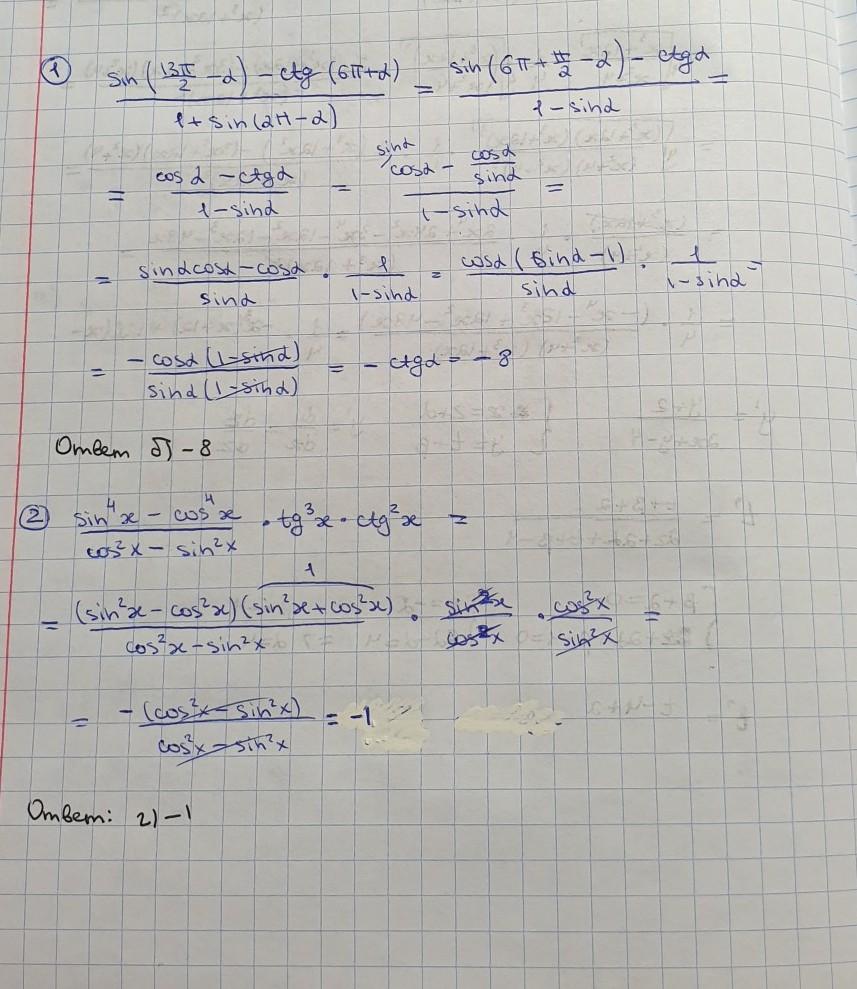 ① (sin(13π/2 − α) − ctg(6π+α))/(1 + sin(2π − α)) = (sin(6π + π/2 − α) − ctgα)/(1 − sinα) =
= (cosα − ctgα)/(1 − sinα) = (sinα/ cosα − cosα/sinα)/(1 − sinα) =
= (sinαcosα − cosα)/sinα · 1/(1 − sinα) = (cosα(sinα − 1))/sinα · 1/(1 − sinα) =
= (−cosα(1 − sinα))/(sinα(1 − sinα)) = − ctgα = − 8
Ответ б) − 8
② (sin⁴x − cos⁴x)/(cos²x − sin²x) · tg³x · ctg²x =
1
= ((sin²x − cos²x)(sin²x + cos²x))/(cos²x − sin²x) · sin²x/cos²x · cos²x/sin²x =
= (−(cos²x − sin²x))/(cos²x − sin²x) = −1
Ответ: 2) −1